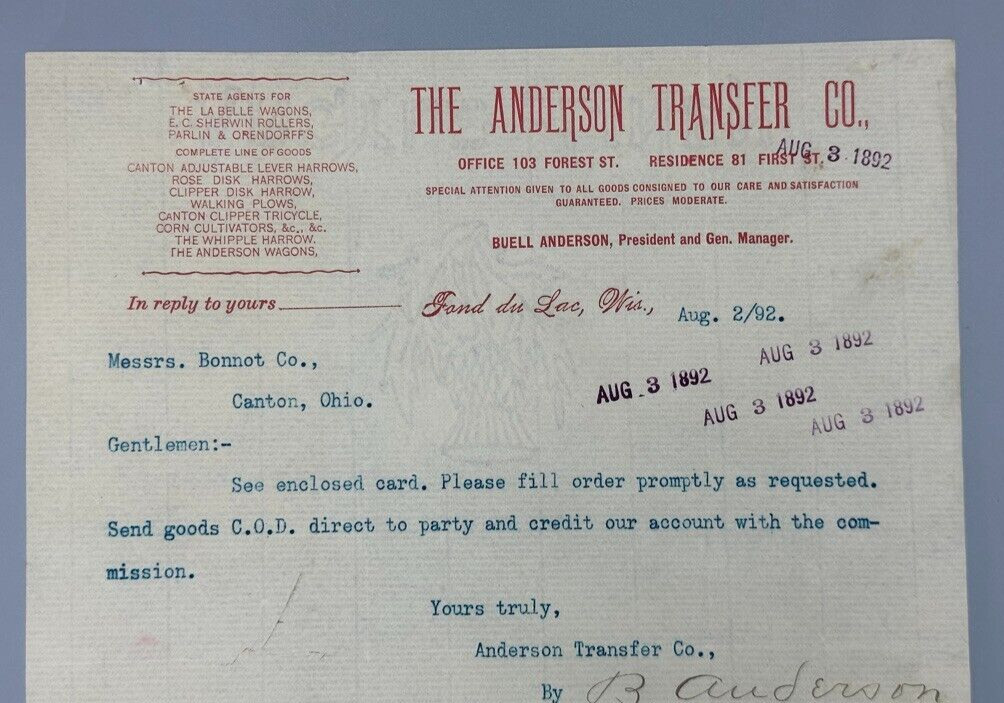 STATE AGENTS FOR
THE LA BELLE WAGONS,
E. C. SHERWIN ROLLERS,
PARLIN & ORENDORFF'S
COMPLETE LINE OF GOODS
CANTON ADJUSTABLE LEVER HARROWS,
ROSE DISK HARROWS,
CLIPPER DISK HARROW,
WALKING PLOWS,
CANTON CLIPPER TRICYCLE,
CORN CULTIVATORS, &c., &c.
THE WHIPPLE HARROW.
THE ANDERSON WAGONS,
THE ANDERSON TRANSFER CO.,
OFFICE 103 FOREST ST. RESIDENCE 81 FIRST ST.
AUG 3 1892
SPECIAL ATTENTION GIVEN TO ALL GOODS CONSIGNED TO OUR CARE AND SATISFACTION
GUARANTEED. PRICES MODERATE.
BUELL ANDERSON, President and Gen. Manager.
In reply to yours
Fond du Lac, Wis., Aug. 2/92.
Messrs. Bonnot Co.,
AUG 3 1892
AUG 3 1892
AUG 3 1892
AUG 3 1892
Canton, Ohio.
Gentlemen:-
See enclosed card. Please fill order promptly as requested.
Send goods C.O.D. direct to party and credit our account with the com-
mission.
Yours truly,
Anderson Transfer Co.,
By B Anderson